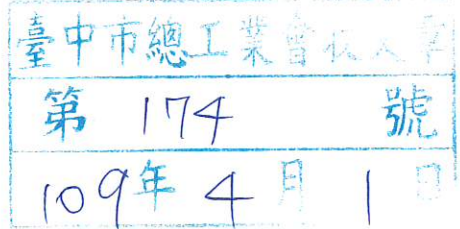 臺中市總工業會收文章
第 174 號
109年 4 月 1 日